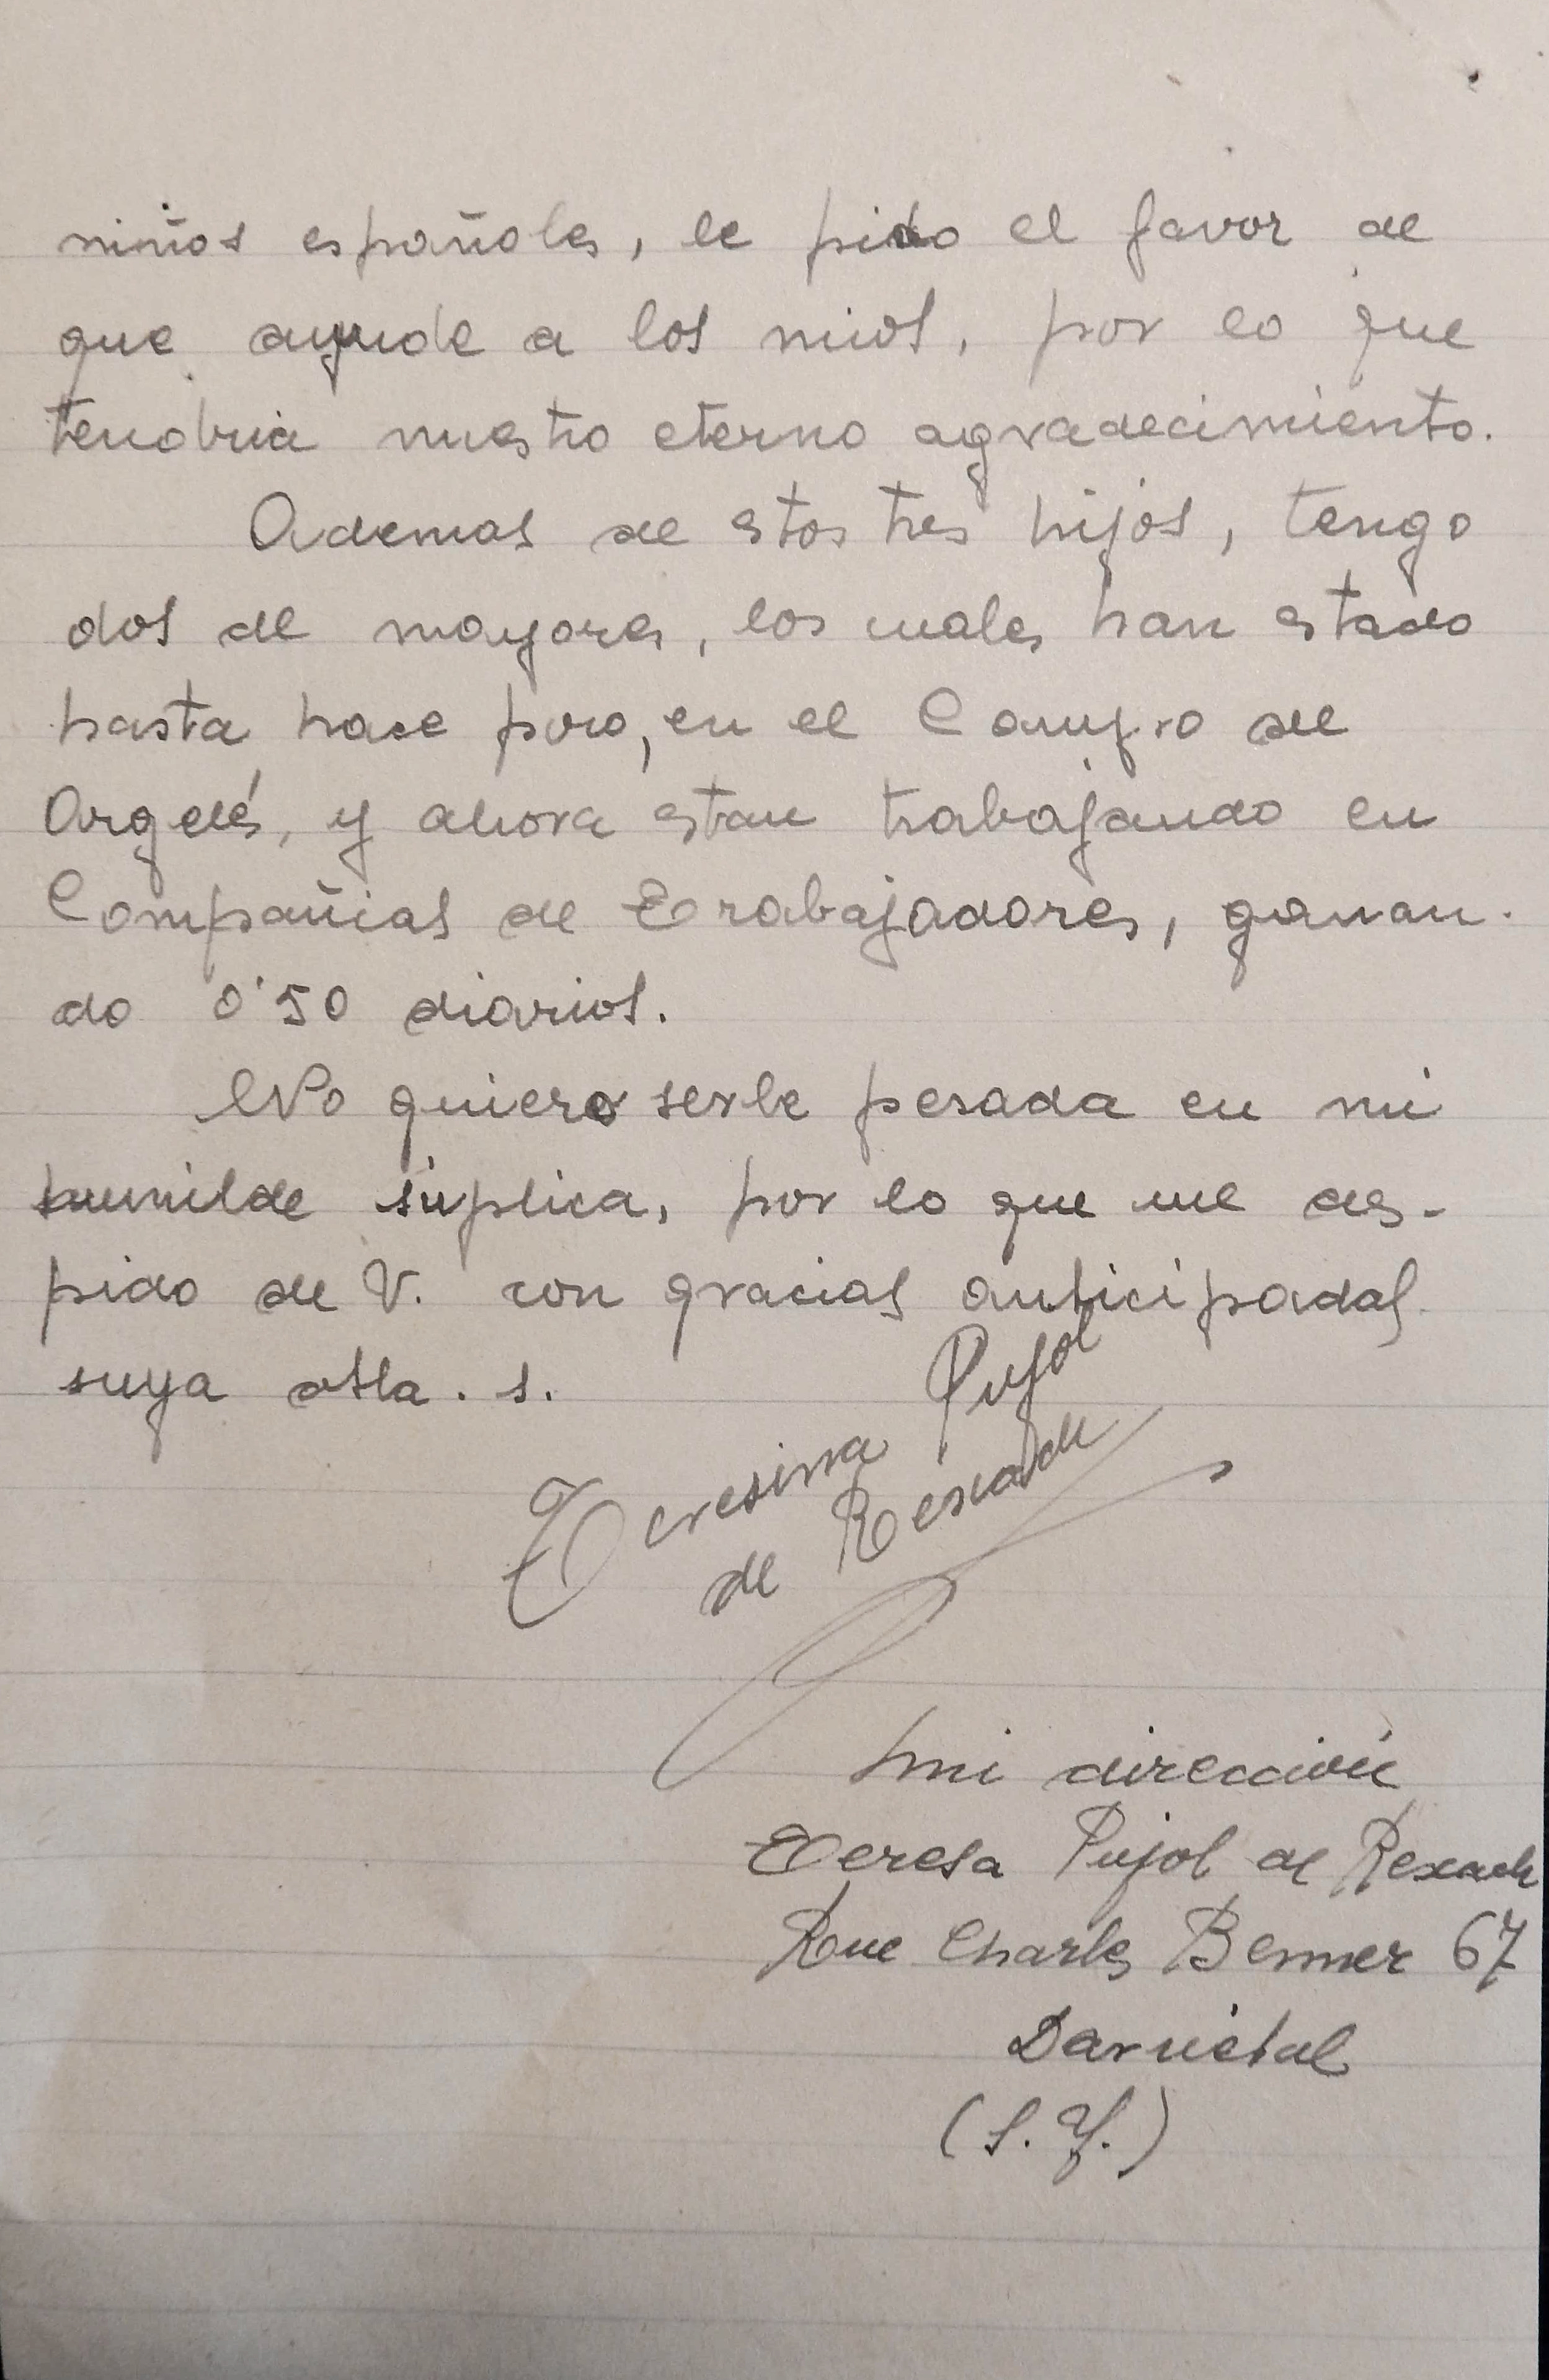 niños españoles, le pido el favor de
que ayude a los mios, por lo que
tendria nuestro eterno agradecimiento.
Ademas de estos tres hijos, tengo
dos de mayores, los cuales han estado
hasta hace poco, en el Campo de
Argelés, y ahora estan trabajando en
Compañias de Trabajadores, ganan-
do 0'50 diarios.
No quiero serle pesada en mi
humilde súplica, por lo que me des-
pido de V. con gracias anticipadas.
suya atta. s.
Teresina Pujol
de Rexach
mi dirección
Teresa Pujol de Rexach
Rue Charles Benner 67
Darnétal
(S. I.)